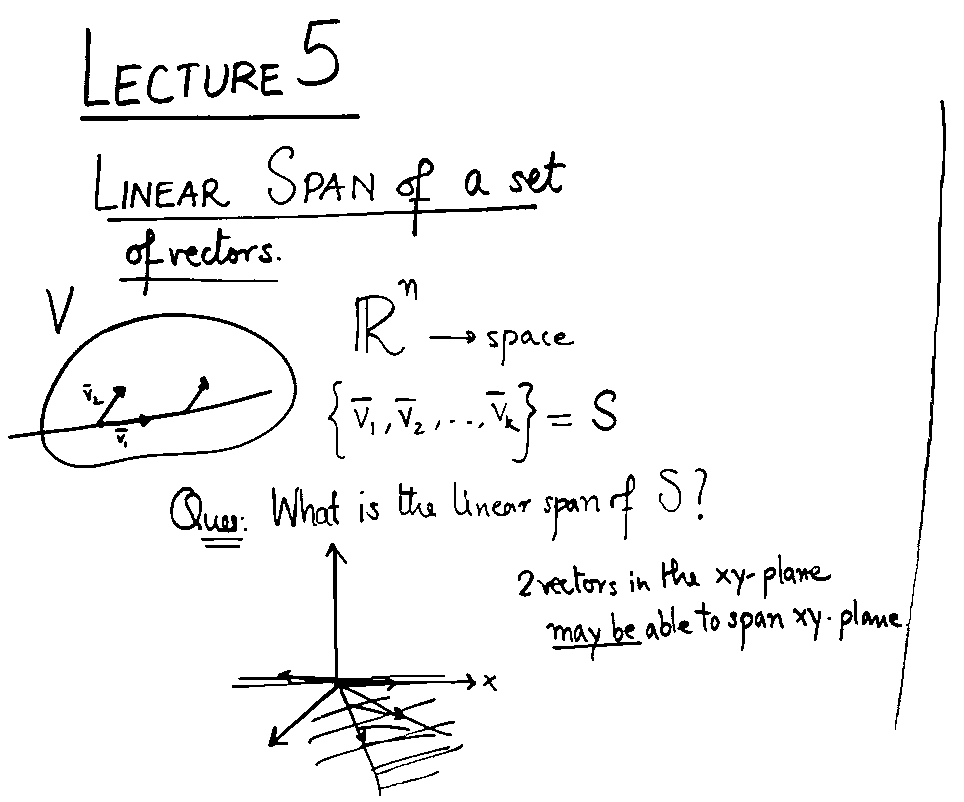 LECTURE 5
LINEAR SPAN of a set
of vectors.
V
ℝⁿ → space
v̄₂
v̄₁
{v̄₁, v̄₂, ..., v̄ₖ} = S
Ques: What is the linear span of S?
2 vectors in the xy-plane
may be able to span xy-plane
x